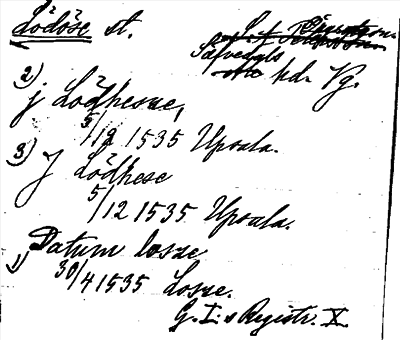 Lödöse st.
Säfvedals
hd. Vg.
2) j Lödhesze,
5/12 1535 Upsala.
3) J Lödhese
5/12 1535 Upsala.
1) Datum losze
30/4 1535 Losze.
G. I:s Registr. X.